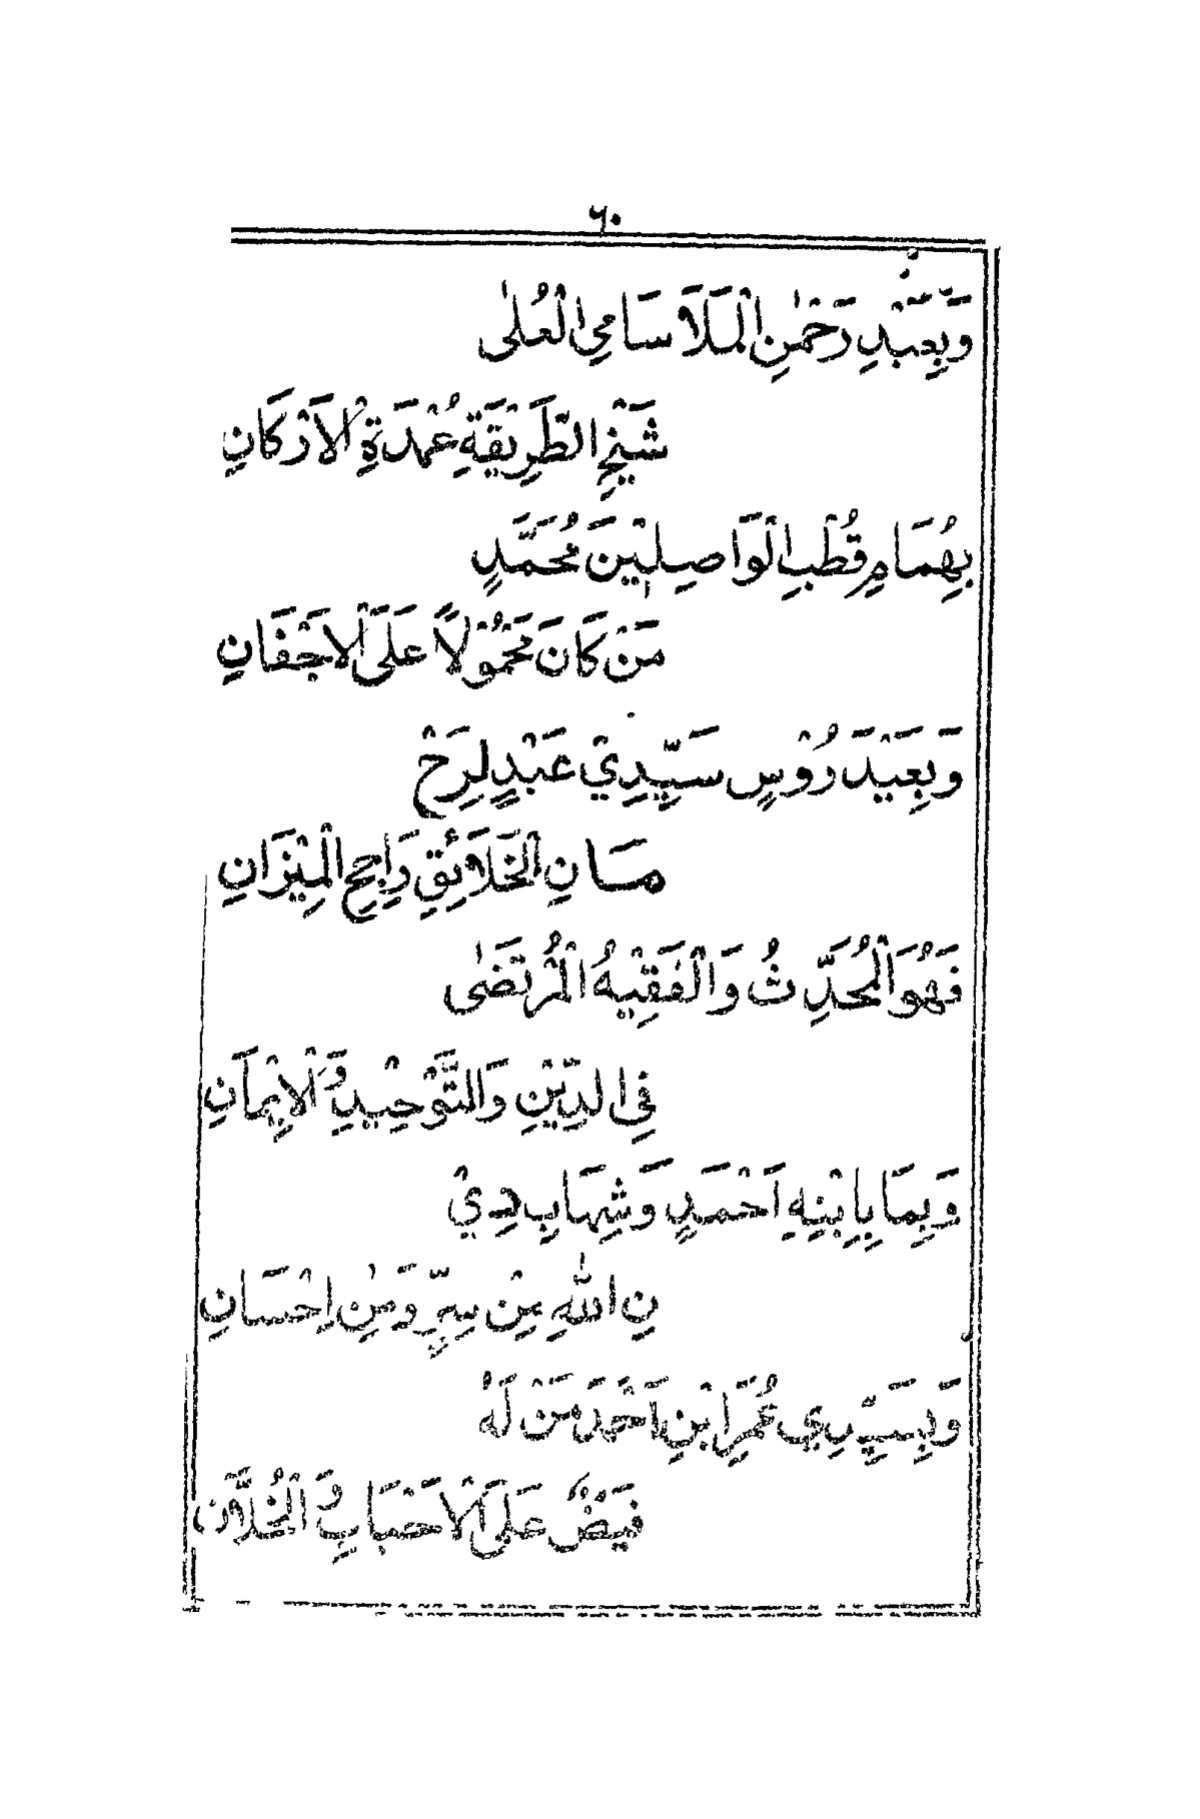 ٦٠
وَبِعَبْدِ رَحْمٰنِ الْمَلَا سَامِي الْعُلٰى
شَيْخِ الطَّرِيْقَةِ عُمْدَةِ الْاَرْكَانِ
بِهُمَامِ قُطْبِ الْوَاصِلِيْنَ مُحَمَّدٍ
مَنْ كَانَ مَحْمُوْلًا عَلَى الْاَجْفَانِ
وَبِعَيْدَرُوْسٍ سَيِّدِيْ عَبْدٍ لِرَحْ
مَـانِ الْخَلَائِقِ رَاجِحِ الْمِيْزَانِ
فَهُوَ الْمُحَدِّثُ وَالْفَقِيْهُ الْمُرْتَضٰى
فِى الدِّيْنِ وَالتَّوْحِيْدِ وَالْاِيْمَانِ
وَبِمَا بِابْنِهِ اَحْمَدٍ وَشِهَابِ دِيْ
نِ اللّٰهِ مِنْ سِرٍّ وَمِنْ اِحْسَانِ
وَبِسَيِّدِي عُمَرِ ابْنِ اَحْمَدَ مَنْ لَهُ
فَيْضٌ عَلَى الْاَحْبَابِ وَالْخُلَّانِ